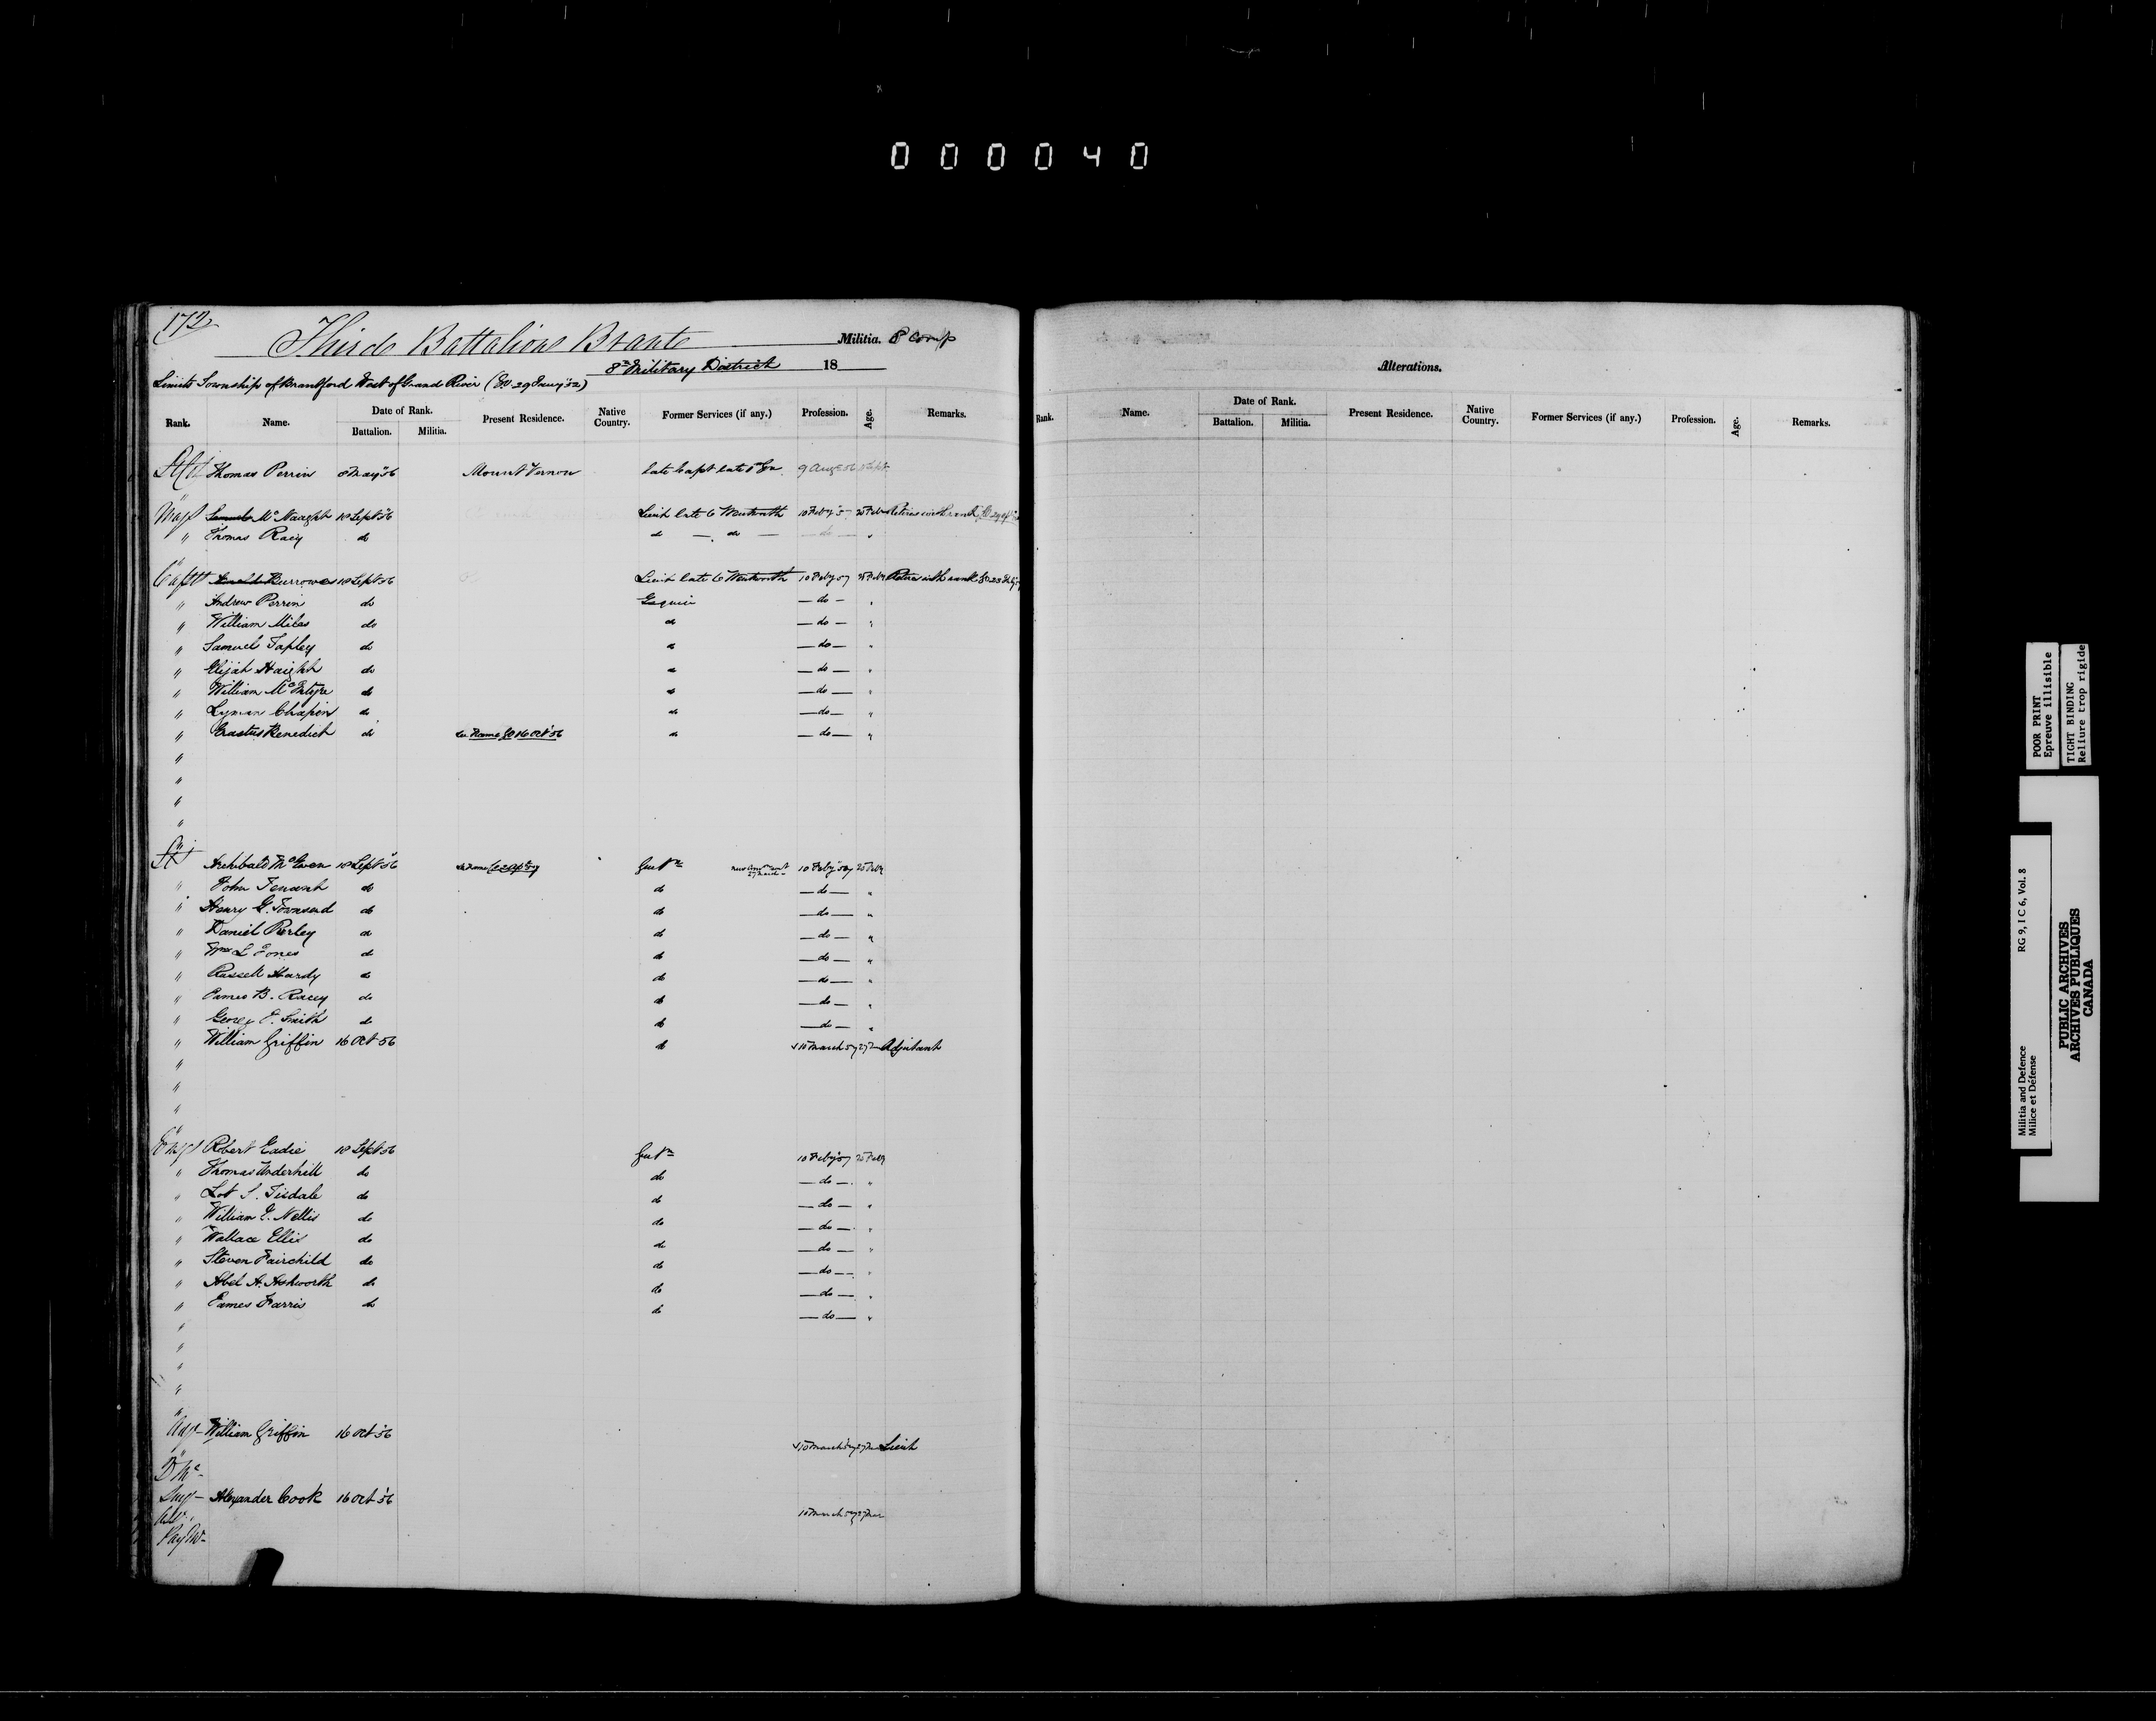 000040
172
Third Battalion Brant Militia. 8 Comp
8th Military District 18
Limits Township of Brantford West of Grand River (GO 29 Jany '52)
Rank. Name. Date of Rank. Battalion. Militia. Present Residence. Native Country. Former Services (if any.) Profession. Age. Remarks.
Lt Col Thomas Perrin 8 May '56 Mount Vernon late Capt late 9 Augt 56 Sept
Majr Samuel McNaught 18 Sept 56 Lieut late 6 Wentworth 10 Feby 25 Feb Retires with rank
" Thomas Racy do do — do — do "
Captt Burrowes 18 Sept 56 Lieut late 6 Wentworth 10 Feby 57 25 Feb Retires with rank GO 23
" Andrew Perrin do Esquire — do — "
" William Miles do do — do — "
" Samuel Tapley do do — do — "
" Elijah Haight do do — do — "
" William McIntyre do do — do — "
" Lyman Chapin do do — do — "
" Erastus Benedict do Name GO 16 Oct 56 do — do — "
"
"
"
"
Lt Archibald McEwen 18 Sept 56 Gentn 10 Feby 57 25 Feb
" John Tennant do do — do — "
" Henry G. Townsend do do — do — "
" Daniel Perley do do — do — "
" Wm L Jones do do — do — "
" Russell Hardy do do — do — "
" James B. Racey do do — do — "
" George E. Smith do do — do — "
" William Griffin 16 Oct 56 do 10 March 57 27 Adjutant
"
"
"
"
Ensgs Robert Eadie 18 Sept 56 Gentn 10 Feby 57 25 Feb
" Thomas Underhill do do — do — "
" Lot S. Tisdale do do — do — "
" William E. Nellis do do — do — "
" Wallace Ellis do do — do — "
" Steven Fairchild do do — do — "
" Abel A. Ashworth do do — do — "
" James Harris do do — do — "
"
"
"
"
"
Adjt William Griffin 16 Oct 56 10 March 57 27 Lieut
Q Mr
Surg Alexander Cook 16 Oct 56 10 March 57 27 Mar
Pay Mr
Alterations.
Rank. Name. Date of Rank. Battalion. Militia. Present Residence. Native Country. Former Services (if any.) Profession. Age. Remarks.
POOR PRINT
Epreuve illisible
TIGHT BINDING
Reliure trop rigide
Militia and Defence
Milice et Défense
RG 9, I C 6, Vol. 8
PUBLIC ARCHIVES
ARCHIVES PUBLIQUES
CANADA